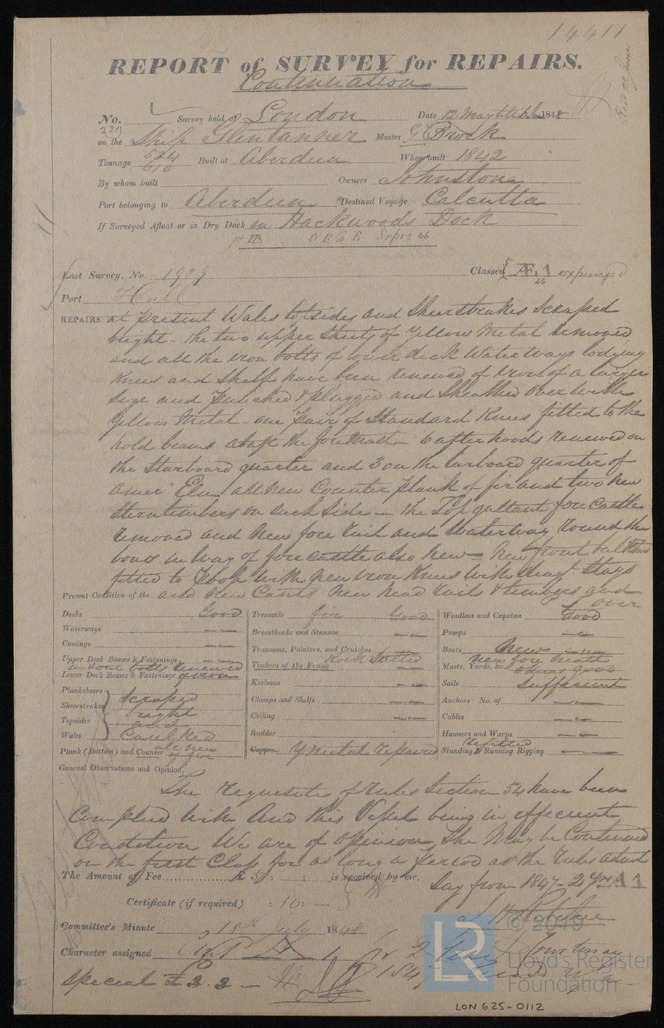 14411
REPORT of SURVEY for REPAIRS.
Continuation
No. Survey held at London Date 12 May 1848
on the Ship Glentanner Master Brock
Tonnage 524 610 Built at Aberdeen When built 1842
By whom built Owners Johnstone
Port belonging to Aberdeen Destined Voyage Calcutta
If Surveyed Afloat or in Dry Dock in Hackwoods Dock
Last Survey, No. 1929 Classed Æ 1 expunged
Port Hull
REPAIRS at present Wales topsides and Sheerstrakes Scraped
bright. the two upper Sheets of Yellow Metal removed
and all the iron bolts of lower deck Waterways lodging
Knees and Shelf have been renewed of Iron of a larger
size and Punched & plugged and Sheathed over with
Yellow Metal - one pair of Standard Knees fitted to the
hold beams abaft the fore Mast - 6 after hoods renewed on
the Starboard quarter and 3 on the larboard quarter of
Amer Elm all new Counter plank of fir and two new
Sterntimbers on each Side - the Topgallant forecastle
removed and new fore rail and Waterway round the
bows in way of forecastle also new - New front bulkhead
fitted to Poop with new iron Knees with Stays
Present Condition of the also New Head rails & timbers and
over
Decks Good
Waterways
Comings
Upper Deck Beams & Fastenings
iron bolts renewed
Lower Deck Beams & Fastenings
Planksheers
Sheerstrakes
Topsides
Wales
Scraped
bright
and
Caulked
Plank (Bottom) and Counter new of fir
Treenails fir Good
Breasthooks and Stemson
Transoms, Pointers, and Crutches
Timbers of the Frame
Keelsons
Clamps and Shelfs
Ceiling
Rudder
Copper Y Metal repaired
Windlass and Capstan Good
Pumps
Boats New
Masts, Yards, &c. New fore Mast others good
Sails Sufficient
Anchors No. of
Cables
Hawsers and Warps
Standing & Running Rigging Refitted
General Observations and Opinion,
The requisites of Rules Section 54 have been
Complied with And this Vessel being in efficient
Condition We are of Opinion She May be Continued
on the first Class for as long a period as the Rules admit
The Amount of Fee £ 5 : : is received by me, Say from 1847 - 2 Yrs A 1
Certificate (if required) : 10 : -
Committee's Minute 18th July 1848
Character assigned
Special £2.2 -
© 2019
Lloyd's Register
Foundation
LR
LON 625-0112